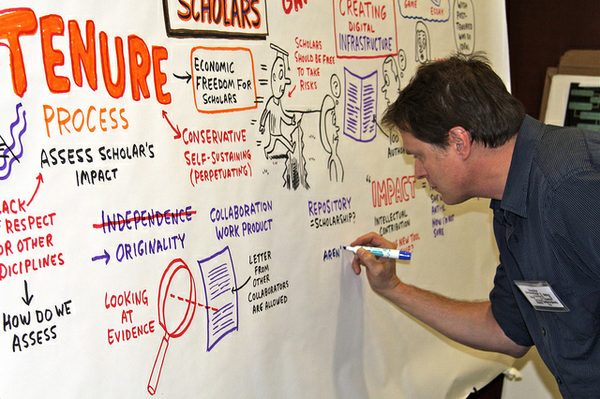 SCHOLARS
TENURE
PROCESS
ASSESS SCHOLAR'S
IMPACT
ECONOMIC
FREEDOM FOR
SCHOLARS
CONSERVATIVE
SELF-SUSTAINING
(PERPETUATING)
SCHOLARS
SHOULD BE FREE
TO TAKE
RISKS
CREATING
DIGITAL
INFRASTRUCTURE
GAME ESSAY
LACK
OF RESPECT
FOR OTHER
DICIPLINES
HOW DO WE
ASSESS
INDEPENDENCE
ORIGINALITY
LOOKING
AT
EVIDENCE
COLLABORATION
WORK PRODUCT
LETTER
FROM
OTHER
COLLABORATORS
ARE ALLOWED
REPOSITORY
=SCHOLARSHIP?
AREN
"IMPACT
INTELLECTUAL
CONTRIBUTION
NEW TOOL